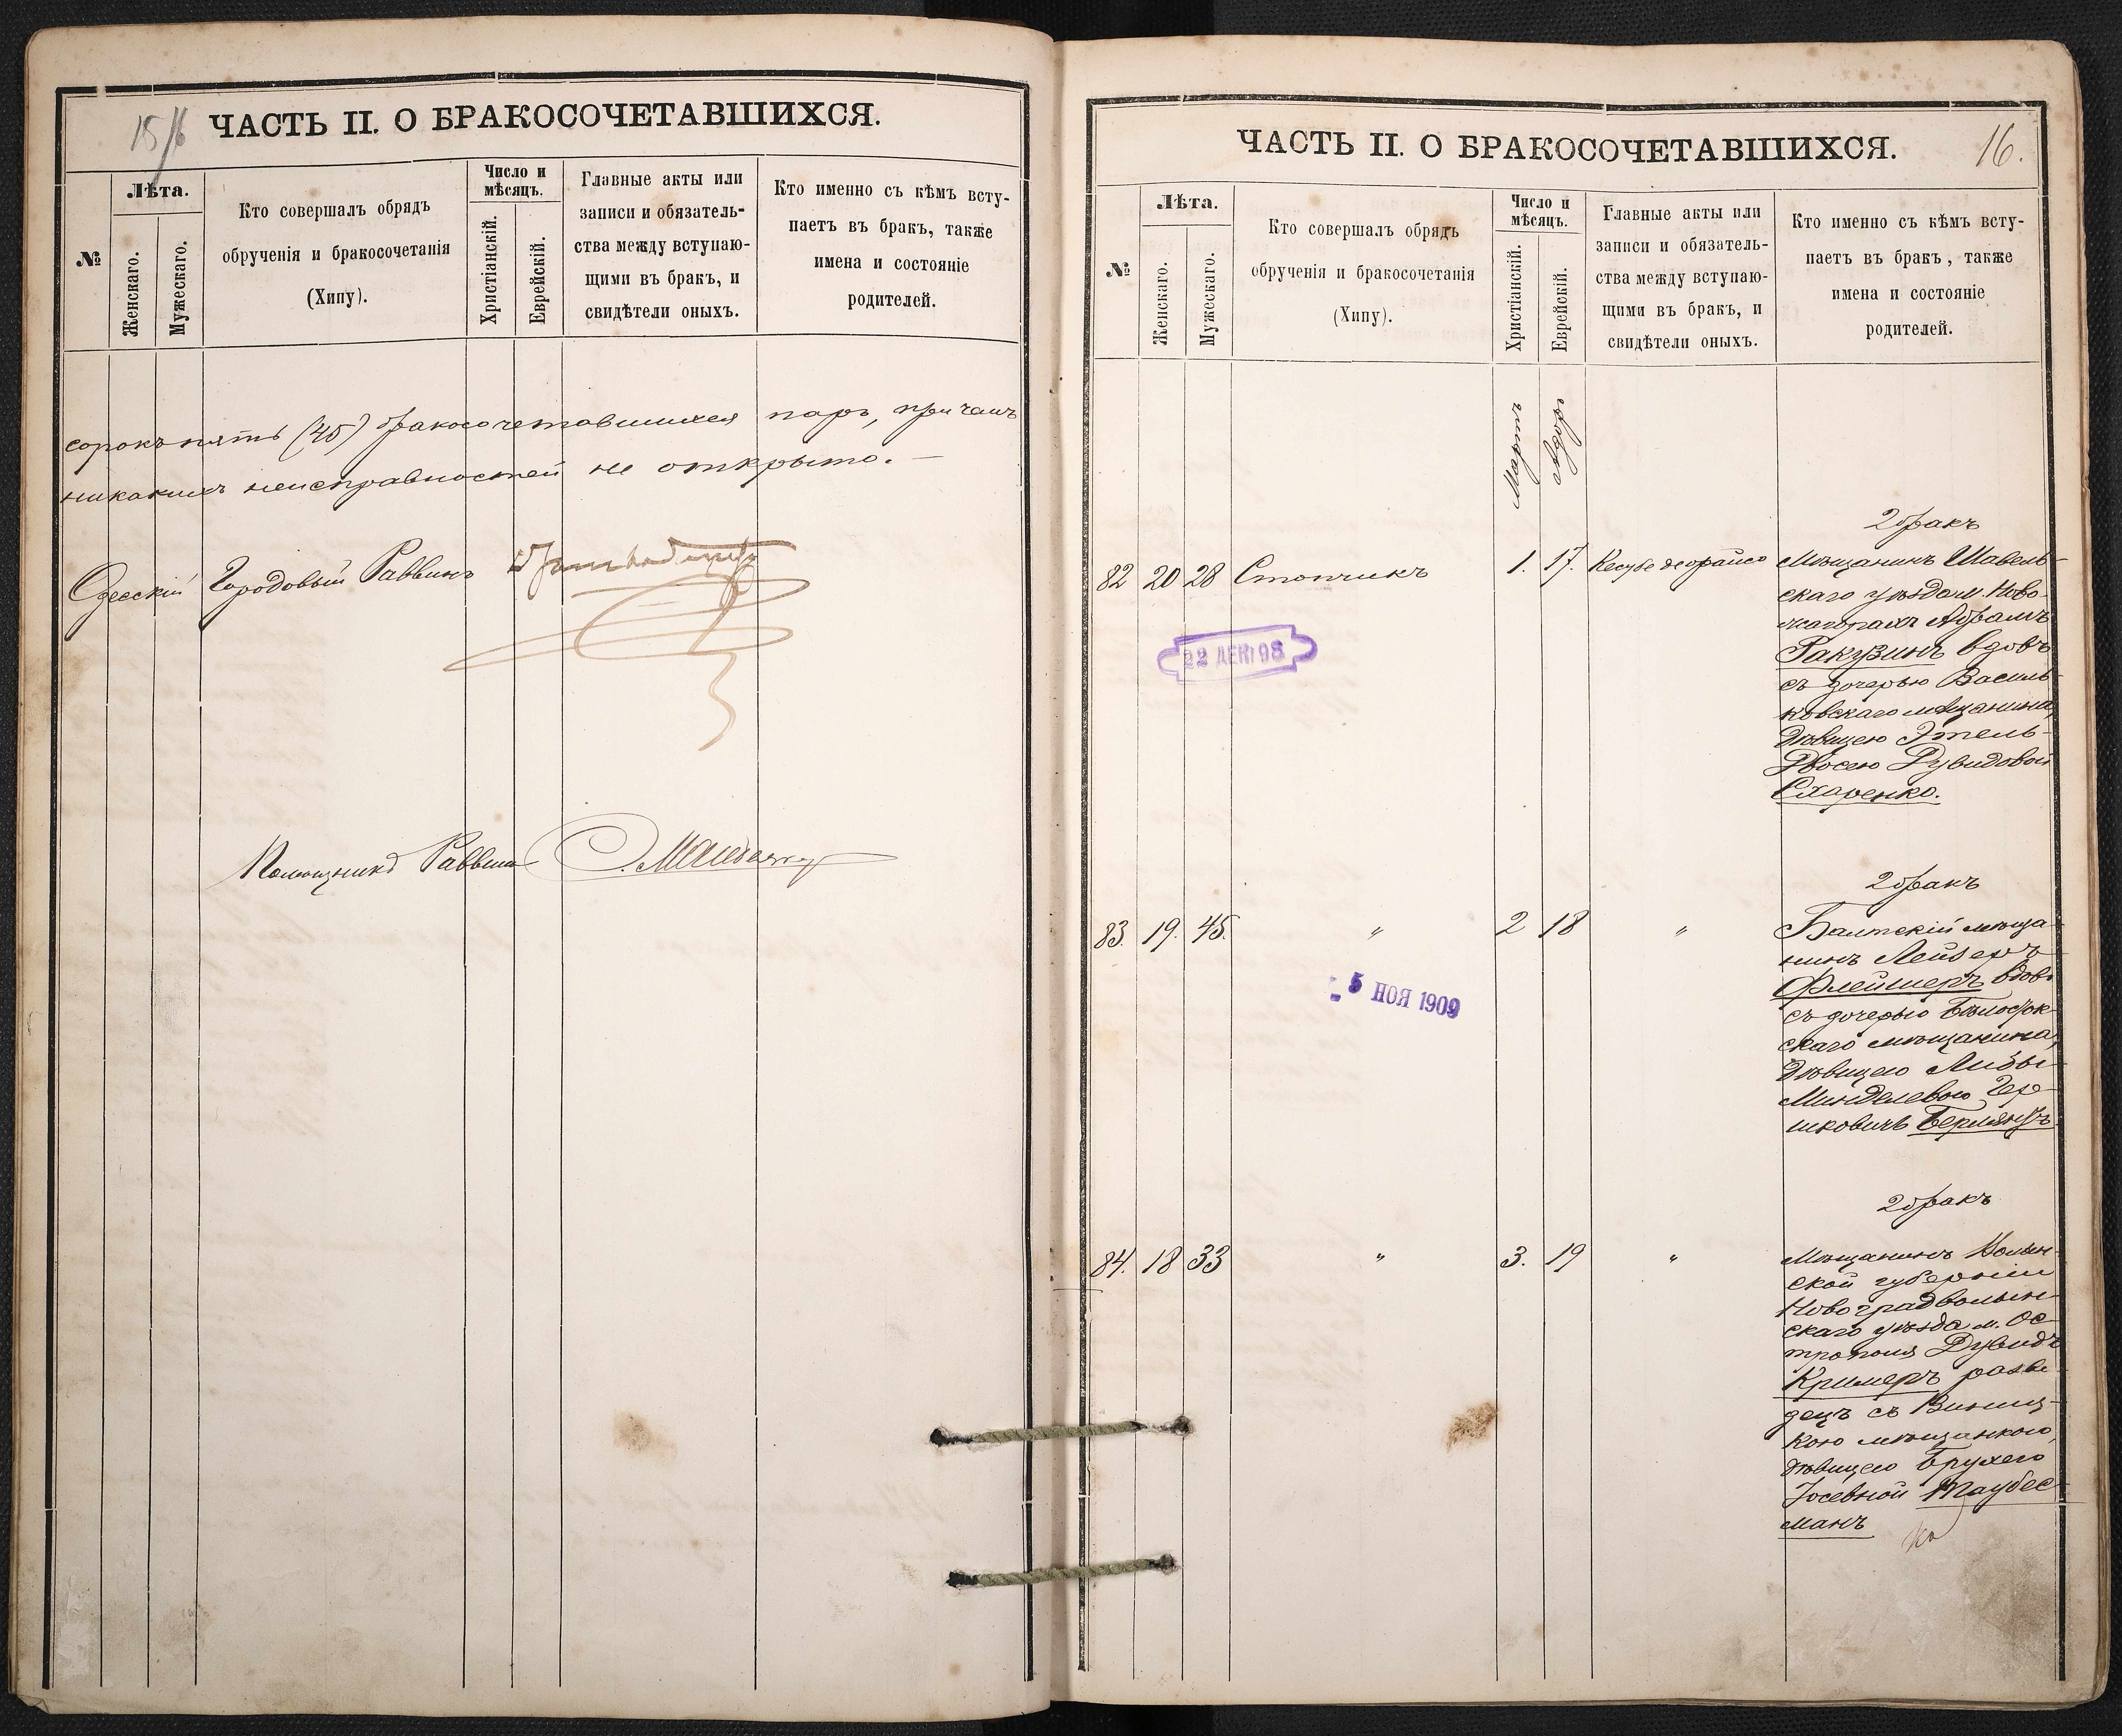 15/16
ЧАСТЬ II. О БРАКОСОЧЕТАВШИХСЯ.
№
Лѣта.
Женскаго.
Мужескаго.
Кто совершалъ обрядъ
обрученія и бракосочетанія
(Хипу).
Число и
мѣсяцъ.
Христіанскій.
Еврейскій.
Главные акты или
записи и обязатель-
ства между вступаю-
щими въ бракъ, и
свидѣтели оныхъ.
Кто именно съ кѣмъ всту-
паетъ въ бракъ, также
имена и состояніе
родителей.
сорокъ пять (45) бракосочетавшихся паръ, при чемъ
никакихъ неисправностей не открыто. —
Одесскій Городовый Раввинъ
Помощникъ Раввина
ЧАСТЬ II. О БРАКОСОЧЕТАВШИХСЯ.
16.
№
Лѣта.
Женскаго.
Мужескаго.
Кто совершалъ обрядъ
обрученія и бракосочетанія
(Хипу).
Число и
мѣсяцъ.
Христіанскій.
Еврейскій.
Главные акты или
записи и обязатель-
ства между вступаю-
щими въ бракъ, и
свидѣтели оныхъ.
Кто именно съ кѣмъ всту-
паетъ въ бракъ, также
имена и состояніе
родителей.
Мартъ
Адоръ
2 бракъ
82 20 28 Стопчикъ 1. 17. Кесубе деорайсо Мѣщанинъ Шавель-
скаго уѣзда м. Ново-
жагоръ Абрамъ
Ракузинъ вдовъ
съ дочерью Василь-
ковскаго мѣщанина,
дѣвицею Этель-
Двосею Дувидовой
Сларенко.
22 ДЕК 98
2 бракъ
83. 19. 45. " 2 18 " Балтскій мѣща-
нинъ Лейзеръ
Флейшеръ вдовъ
съ дочерью Бѣлосток-
скаго мѣщанина,
дѣвицею Либы
Минделевою Гер-
шковичъ Берлянъ
5 НОЯ 1909
2 бракъ
84. 18 33 " 3. 19 " Мѣщанинъ Волын-
ской губерніи
Новоградволын-
скаго уѣзда м. Ос-
трополя Дувидъ
Кримеръ разве-
децъ съ Винниц-
кою мѣщанкою,
дѣвицею Брухею
Іосевной Таубес-
манъ